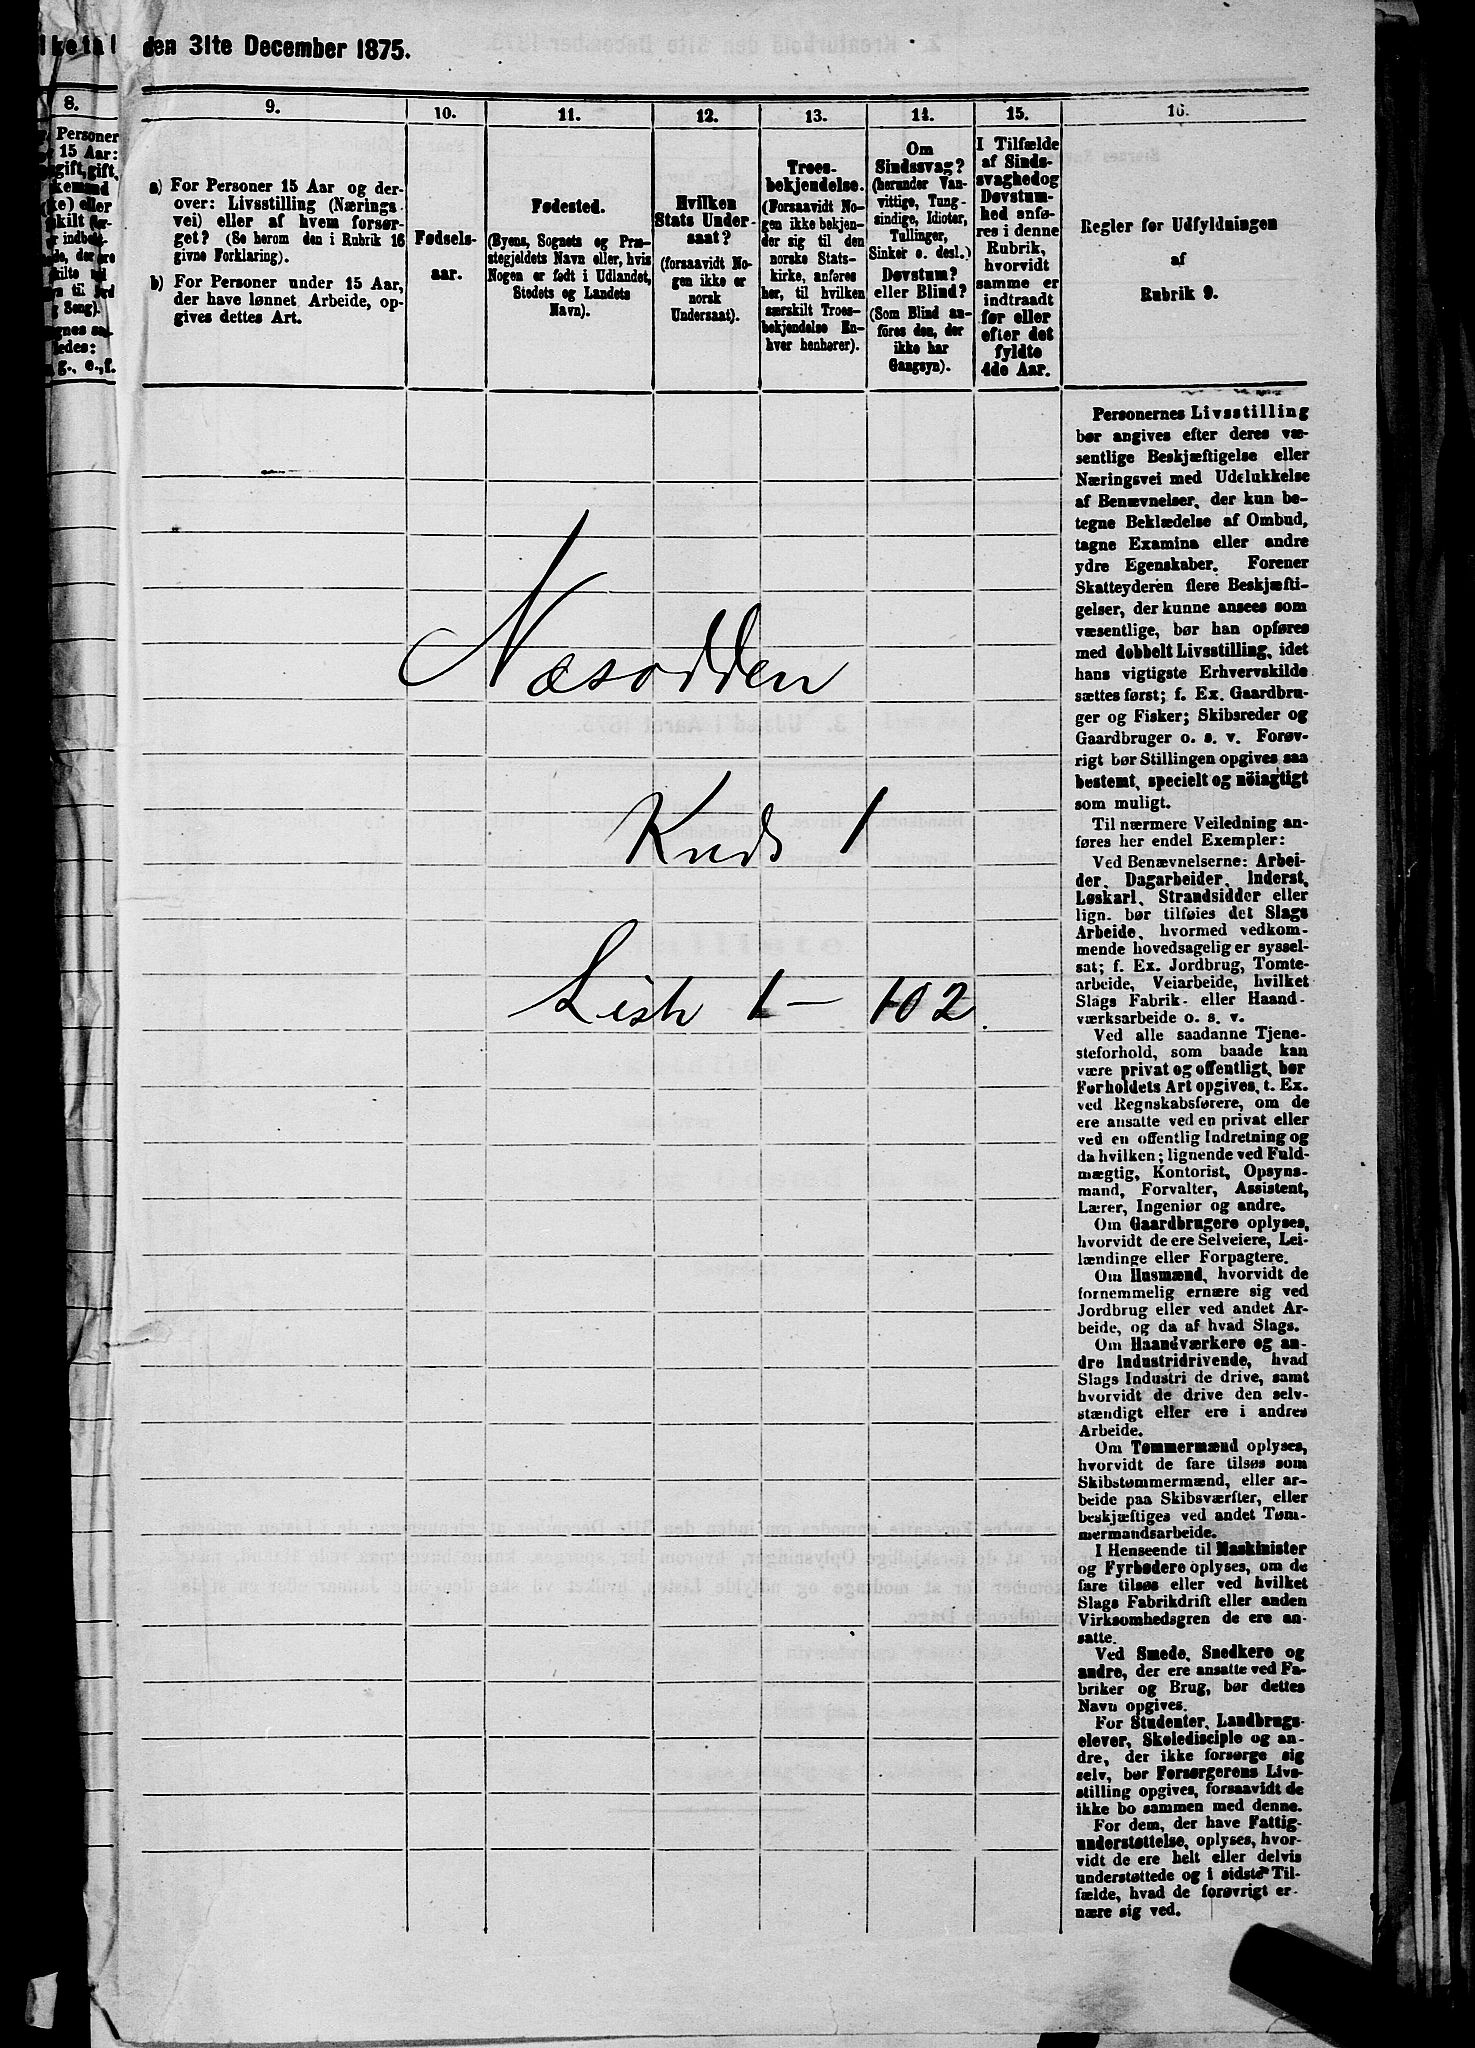 den 31te December 1875.
8.
9.
10.
11.
12.
13.
14.
15.
16.
Personer
15 Aar:
a) For Personer 15 Aar og der-
over: Livsstilling (Nærings
vei) eller af hvem forsør-
get? (Se herom den i Rubrik 16
givne Forklaring).
b) For Personer under 15 Aar,
der have lønnet Arbeide, op-
gives dettes Art.
Fødsels-
aar.
Fødested.
(Byens, Sognets og Præ-
stegjeldets Navn eller, hvis
Nogen er født i Udlandet,
Stedets og Landets
Navn).
Hvilken
Stats Under-
saat?
(forsaavidt No-
gen ikke er
norsk
Undersaat).
Troes-
bekjendelse.
(Forsaavidt No-
gen ikke bekjen-
der sig til den
norske Stats-
kirke, anføres
her, til hvilken
særskilt Troes-
bekjendelse En-
hver henhører).
Om
Sindssvag?
(herunder Van-
vittige, Tung-
sindige, Idioter,
Tullinger,
Sinker o. desl.)
Døvstum?
eller Blind?
(Som Blind an-
føres den, der
ikke har
Gangsyn).
I Tilfælde
af Sinds-
svaghed og
Døvstum-
hed anfø-
res i denne
Rubrik,
hvorvidt
samme er
indtraadt
før eller
efter det
fyldte
4de Aar.
Regler for Udfyldningen
af
Rubrik 9.
Personernes Livsstilling
bør angives efter deres væ-
sentlige Beskjæftigelse eller
Næringsvei med Udelukkelse
af Benævnelser, der kun be-
tegne Beklædelse af Ombud,
tagne Examina eller andre
ydre Egenskaber. Forener
Skatteyderen flere Beskjæfti-
gelser, der kunne ansees som
væsentlige, bør han opføres
med dobbelt Livsstilling, idet
hans vigtigste Erhvervskilde
sættes først; f. Ex. Gaardbru-
ger og Fisker; Skibsreder og
Gaardbruger o. s. v. Forøv-
rigt bør Stillingen opgives saa
bestemt, specielt og nöiagtigt
som muligt.
Til nærmere Veiledning an-
føres her endel Exempler:
Ved Benævnelserne: Arbei-
der, Dagarbeider, Inderst,
Løskarl, Strandsidder eller
lign. bør tilføies det Slags
Arbeide, hvormed vedkom-
mende hovedsagelig er syssel-
sat; f. Ex. Jordbrug, Tomte-
arbeide, Veiarbeide, hvilket
Slags Fabrik- eller Haand-
værksarbeide o. s. v.
Ved alle saadanne Tjene-
steforhold, som baade kan
være privat og offentligt, bør
Forholdets Art opgives, t. Ex.
ved Regnskabsførere, om de
ere ansatte ved en privat eller
ved en offentlig Indretning og
da hvilken; lignende ved Fuld-
mægtig, Kontorist, Opsyns-
mand, Forvalter, Assistent,
Lærer, Ingeniør og andre.
Om Gaardbrugere oplyses,
hvorvidt de ere Selveiere, Lei-
lændinge eller Forpagtere.
Om Husmænd, hvorvidt de
fornemmelig ernære sig ved
Jordbrug eller ved andet Ar-
beide, og da af hvad Slags.
Om Haandværkere og an-
dre Industridrivende, hvad
Slags Industri de drive, samt
hvorvidt de drive den selv-
stændigt eller ere i andres
Arbeide.
Om Tømmermænd oplyses,
hvorvidt de fare tilsøs som
Skibstømmermænd, eller ar-
beide paa Skibsværfter, eller
beskjæftiges ved andet Tøm-
mermandsarbeide.
I Henseende til Maskinister
og Fyrbødere oplyses, om de
fare tilsøs eller ved hvilket
Slags Fabrikdrift eller anden
Virksomhedsgren de ere an-
satte.
Ved Smede, Snedkere og
andre, der ere ansatte ved Fa-
briker og Brug, bør dettes
Navn opgives.
For Studenter, Landbrugs-
elever, Skoledisciple og an-
dre, der ikke forsørge sig
selv, bør Forsørgerens Livs-
stilling opgives, forsaavidt de
ikke bo sammen med denne.
For dem, der have Fattig-
understøttelse, oplyses, hvor-
vidt de ere helt eller delvis
understøttede og i sidste Til-
fælde, hvad de forøvrigt er-
nære sig ved.
Næsodden
Kreds 1
Liste 1 - 102.